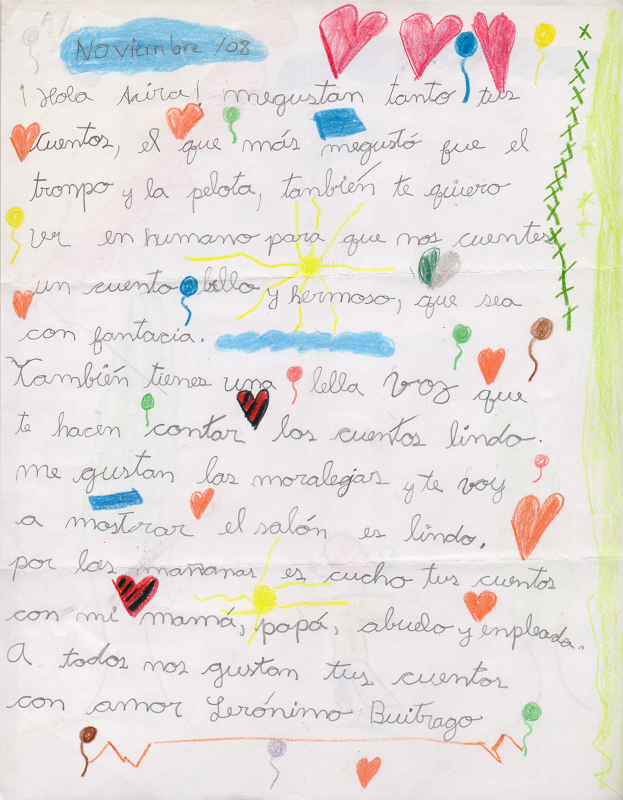 Noviembre /08
¡Hola Akira! megustan tanto tus
Cuentos, el que más megustó fue el
trompo y la pelota, también te quiero
ver en humano para que nos cuentes
un cuento bello y hermoso, que sea
con fantacia.
También tienes una bella voz que
te hacen contar los cuentos lindo.
me gustan las moralejas y te voy
a mostrar el salón es lindo.
por las mañanas es cucho tus cuentos
con mi mamá, papá, abuelo y enpleada.
A todos nos gustan tus cuentos
con amor Jerónimo Buitrago